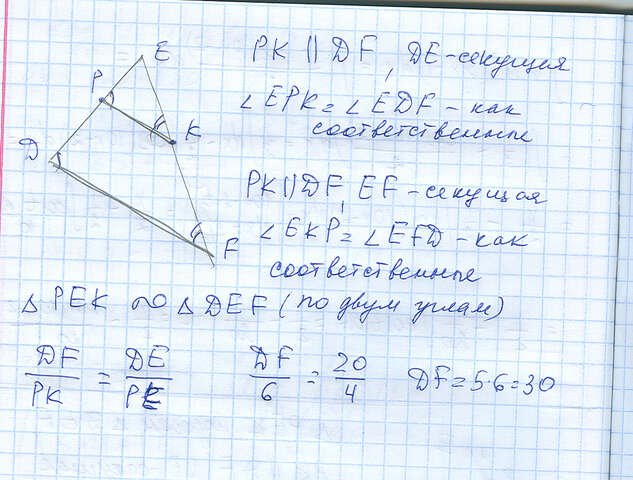 E
P
K
D
F
PK || DF, DE-секущая
∠EPK = ∠EDF - как
соответственные
PK || DF, EF-секущая
∠EKP = ∠EFD - как
соответственные
△ PEK ∾ △ DEF (по двум углам)
DF/PK = DE/PE DF/6 = 20/4 DF = 5·6 = 30